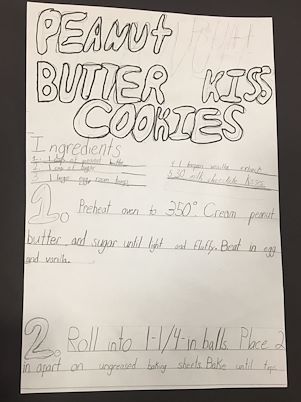 PEANUt
BUTTER KISS
COOKIES
Ingredients
1. 1 cup of peanut butter
2. 1 cup of sugar
3. 1 large egg room temp
4. 1 teaspoon vanilla extract
5. 30 milk chocolate kisses
1. Preheat oven to 350°. Cream peanut
butter and sugar until light and fluffy. Beat in egg
and vanilla.
2. Roll into 1-1/4-in balls. Place 2
in apart on ungreased baking sheets. Bake until tops